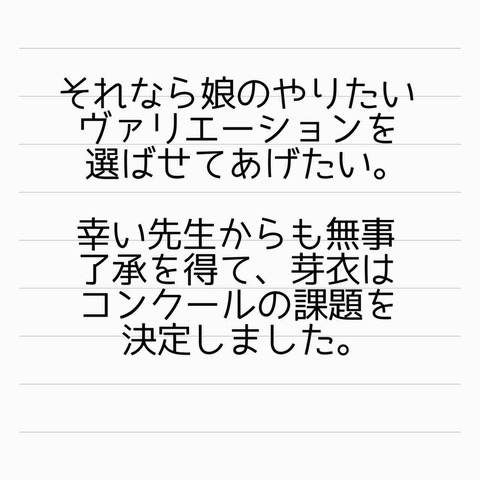 それなら娘のやりたい
ヴァリエーションを
選ばせてあげたい。
幸い先生からも無事
了承を得て、芽衣は
コンクールの課題を
決定しました。